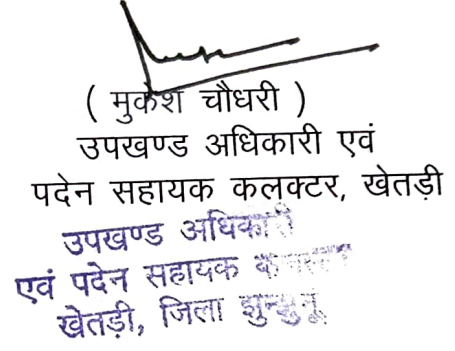 ( मुकेश चौधरी )
उपखण्ड अधिकारी एवं
पदेन सहायक कलक्टर, खेतड़ी
उपखण्ड अधिकारी
एवं पदेन सहायक
खेतड़ी, जिला झुन्झुनू